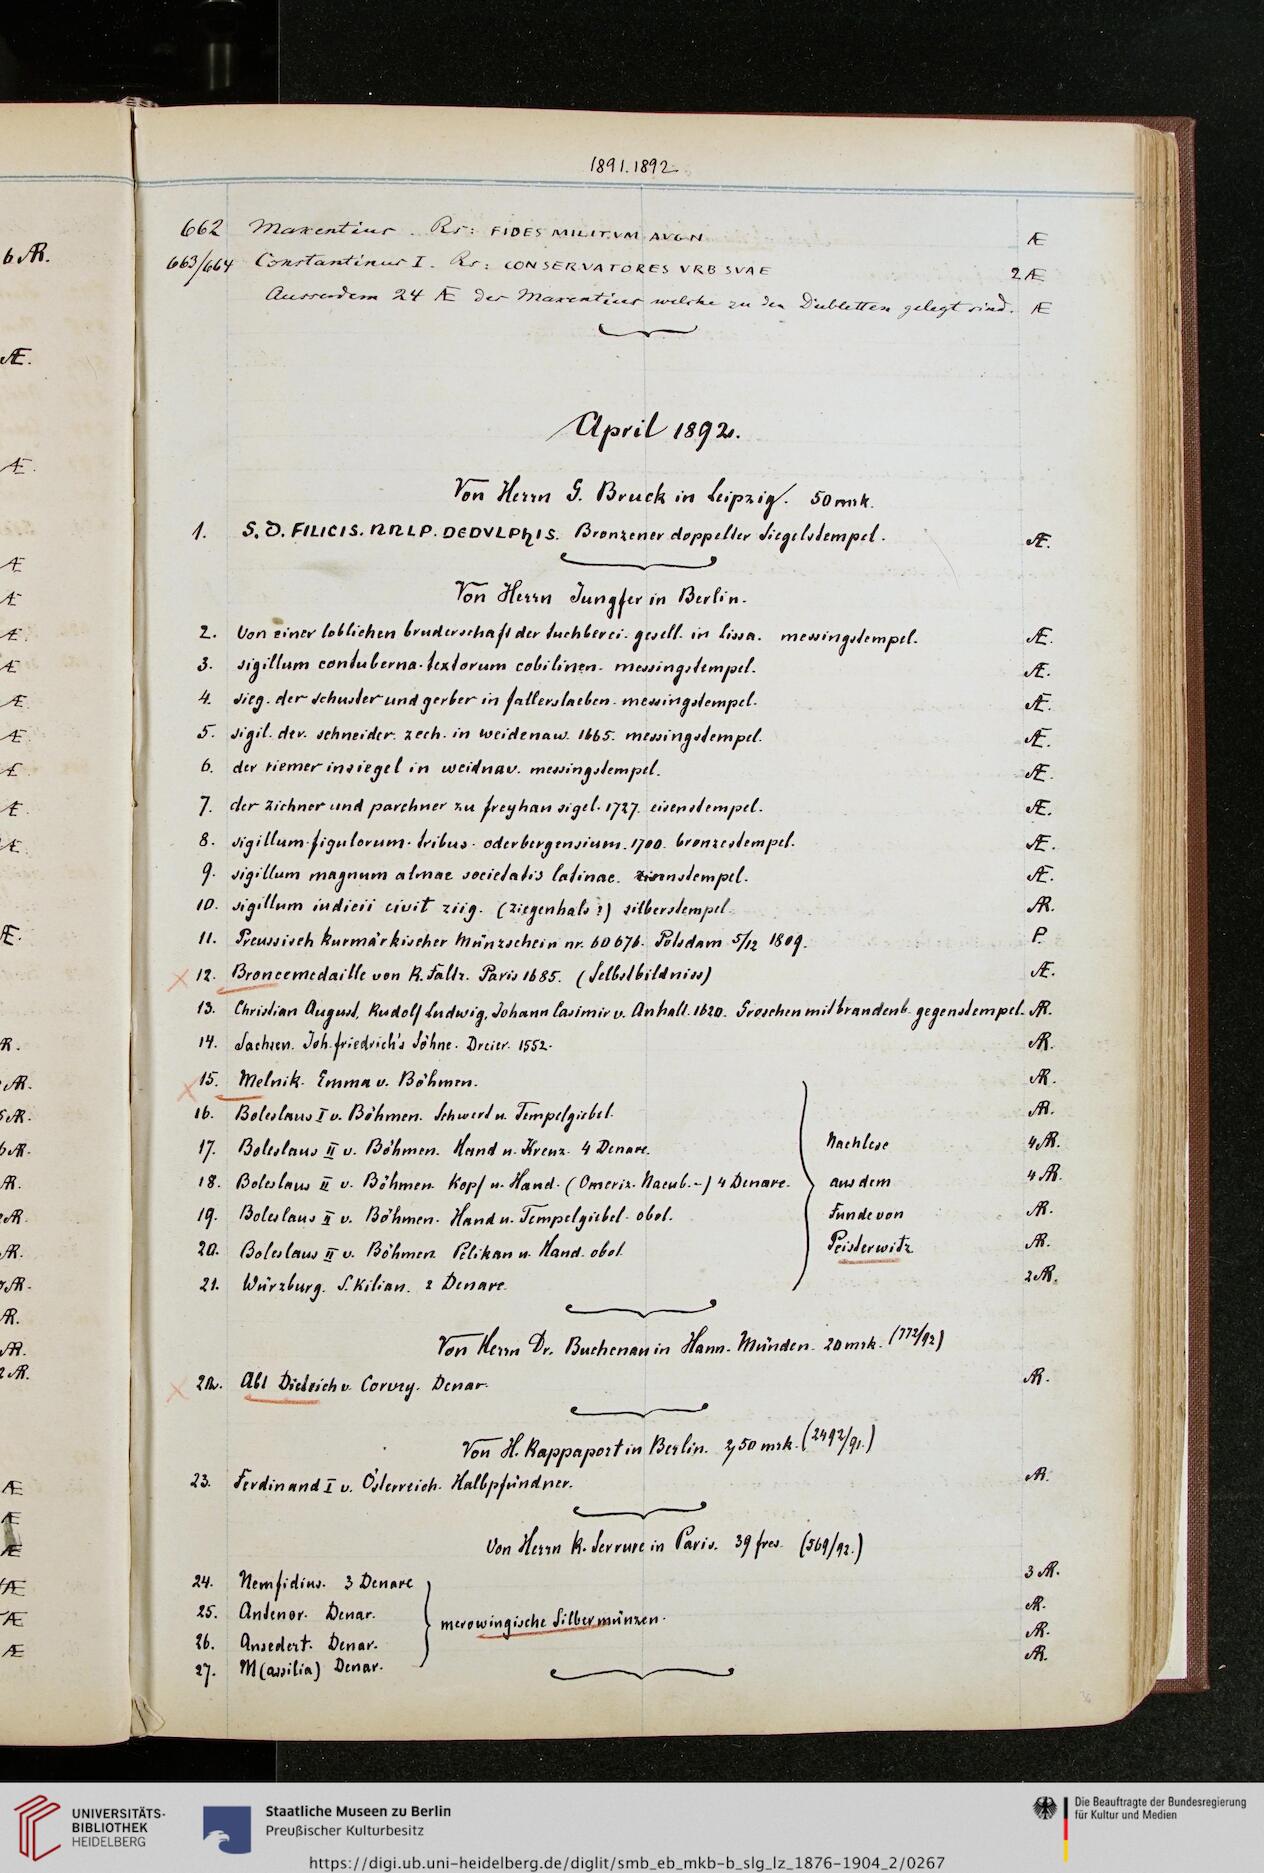 1891.1892
662 Maxentius. Rs: FIDES MILITVM AVGN Æ
663/664 Constantinus I. Rs: CONSERVATORES VRB SVAE 2 Æ
Ausserdem 24 Æ des Maxentius welche zu den Dubletten gelegt sind. Æ
April 1892.
Von Herrn G. Bruck in Leipzig. 50 mrk.
1. S. D. FILICIS. Bronzener doppelter Siegelstempel. Æ.
Von Herrn Jungfer in Berlin.
2. Von einer loblichen bruderschaft der tuchberei. gesell. in Lissa. messingstempel. Æ.
3. sigillum contuberna. textorum cobilinen. messingstempel. Æ.
4. sieg. der schuster und gerber in fallerslaeben. messingstempel. Æ.
5. sigil. der. schneider. zech. in weidenaw. 1665. messingstempel. Æ.
6. der riemer insiegel in weidnav. messingstempel. Æ.
7. der zichner und parchner zu freyhan sigel. 1727. eisenstempel. Æ.
8. sigillum. figulorum. tribus. oderbergensium. 1700. bronzestempel. Æ.
9. sigillum magnum almae societatis latinae. eisenstempel. Æ.
10. sigillum iudicii civit ziig. (ziegenhals?) silberstempel. AR.
11. Preussisch kurmärkischer Münzschein nr. 60676. Potsdam 5/12 1809. P.
12. Broncemedaille von R. Faltz. Paris 1685. (Selbstbildniss) Æ.
13. Christian August, Rudolf Ludwig, Johann Casimir v. Anhalt. 1620. Groschen mit brandenb. gegenstempel. AR.
14. Sachsen. Joh. friedrich's Söhne. Dreier. 1552. AR.
15. Melnik. Emma v. Böhmen. AR.
16. Boleslaus I v. Böhmen. Schwert u. Tempelgiebel. AR.
17. Boleslaus II v. Böhmen. Hand u. Kreuz. 4 Denare. Nachlese 4 AR.
18. Boleslaus II v. Böhmen. Kopf u. Hand. (Omeriz. Nacub.-) 4 Denare. aus dem 4 AR.
19. Boleslaus II v. Böhmen. Hand u. Tempelgiebel. obol. Funde von AR.
20. Boleslaus II v. Böhmen. Pelikan u. Hand. obol. Peisterwitz AR.
21. Würzburg. S. Kilian. 2 Denare. 2 AR.
Von Herrn Dr. Buchenau in Hann. Münden. 20 mrk. (772/92)
22. Abt Dietrich v. Corvey. Denar. AR.
Von H. Rappaport in Berlin. 2,50 mrk. (2492/91.)
23. Ferdinand I v. Österreich. Halbpfundner. AR.
Von Herrn R. Serrure in Paris. 39 frcs. (569/92.)
24. Nemfidius. 3 Denare 3 AR.
25. Antenor. Denar. merowingische Silbermünzen. AR.
26. Ansedert. Denar. AR.
27. M(assilia) Denar. AR.
6 AR.
Æ.
UNIVERSITÄTS-
BIBLIOTHEK
HEIDELBERG
Staatliche Museen zu Berlin
Preußischer Kulturbesitz
Die Beauftragte der Bundesregierung
für Kultur und Medien
https://digi.ub.uni-heidelberg.de/diglit/smb_eb_mkb-b_slg_lz_1876-1904_2/0267